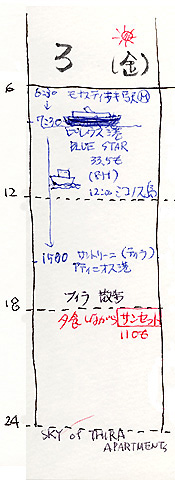 3 (金)
6
6:30 モナスティラキ駅Ⓜ
7:30
ピレウス港
BLUE STAR
33.5€
12
12:00 ミコノス島
1500 サントリーニ(ティラ)
アティニオス港
フィラ 散歩
18
夕食しながらサンセット
110€
24
SKY OF THIRA
APARTMENTS